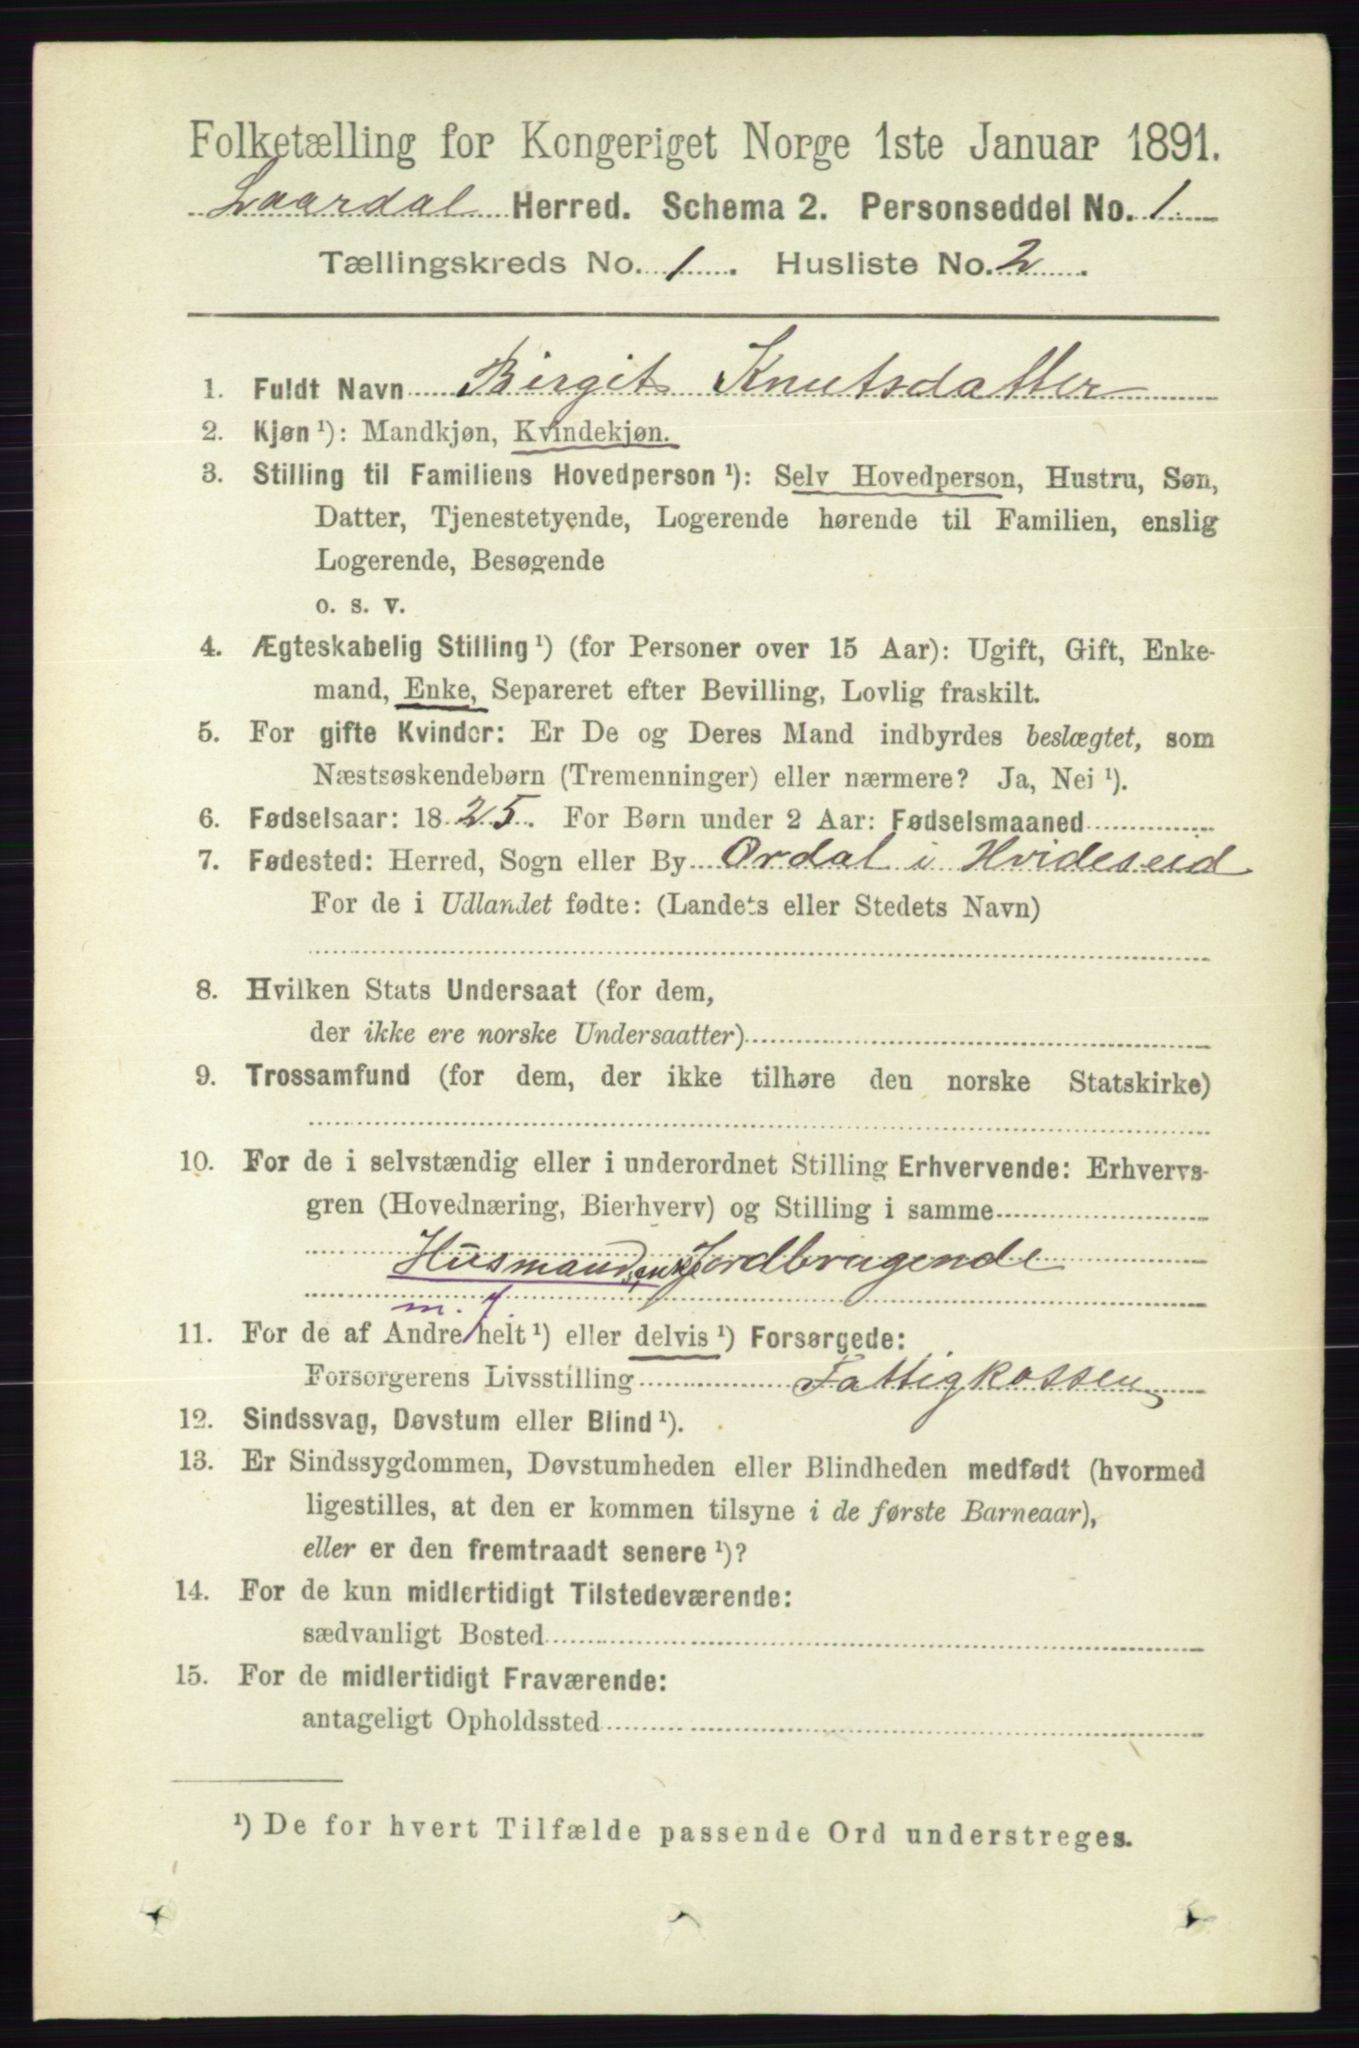 Folketælling for Kongeriget Norge 1ste Januar 1891.
Laardal Herred. Schema 2. Personseddel No. 1
Tællingskreds No. 1. Husliste No. 2.
1. Fuldt Navn Birgit Knutsdatter
2. Kjøn ¹): Mandkjøn, Kvindekjøn.
3. Stilling til Familiens Hovedperson ¹): Selv Hovedperson, Hustru, Søn,
Datter, Tjenestetyende, Logerende hørende til Familien, enslig
Logerende, Besøgende
o. s. v.
4. Ægteskabelig Stilling ¹) (for Personer over 15 Aar): Ugift, Gift, Enke-
mand, Enke, Separeret efter Bevilling, Lovlig fraskilt.
5. For gifte Kvinder: Er De og Deres Mand indbyrdes beslægtet, som
Næstsøskendebørn (Tremenninger) eller nærmere? Ja, Nei ¹).
6. Fødselsaar: 1825. For Børn under 2 Aar: Fødselsmaaned
7. Fødested: Herred, Sogn eller By Ordal i Hvideseid
For de i Udlandet fødte: (Landets eller Stedets Navn)
8. Hvilken Stats Undersaat (for dem,
der ikke ere norske Undersaatter)
9. Trossamfund (for dem, der ikke tilhøre den norske Statskirke)
10. For de i selvstændig eller i underordnet Stilling Erhvervende: Erhvervs-
gren (Hovednæring, Bierhverv) og Stilling i samme
Husmandsenke Jordbrugende
m. J.
11. For de af Andre helt ¹) eller delvis ¹) Forsørgede:
Forsørgerens Livsstilling Fattigkassen
12. Sindssvag, Døvstum eller Blind ¹).
13. Er Sindssygdommen, Døvstumheden eller Blindheden medfødt (hvormed
ligestilles, at den er kommen tilsyne i de første Barneaar),
eller er den fremtraadt senere ¹)?
14. For de kun midlertidigt Tilstedeværende:
sædvanligt Bosted
15. For de midlertidigt Fraværende:
antageligt Opholdssted
¹) De for hvert Tilfælde passende Ord understreges.